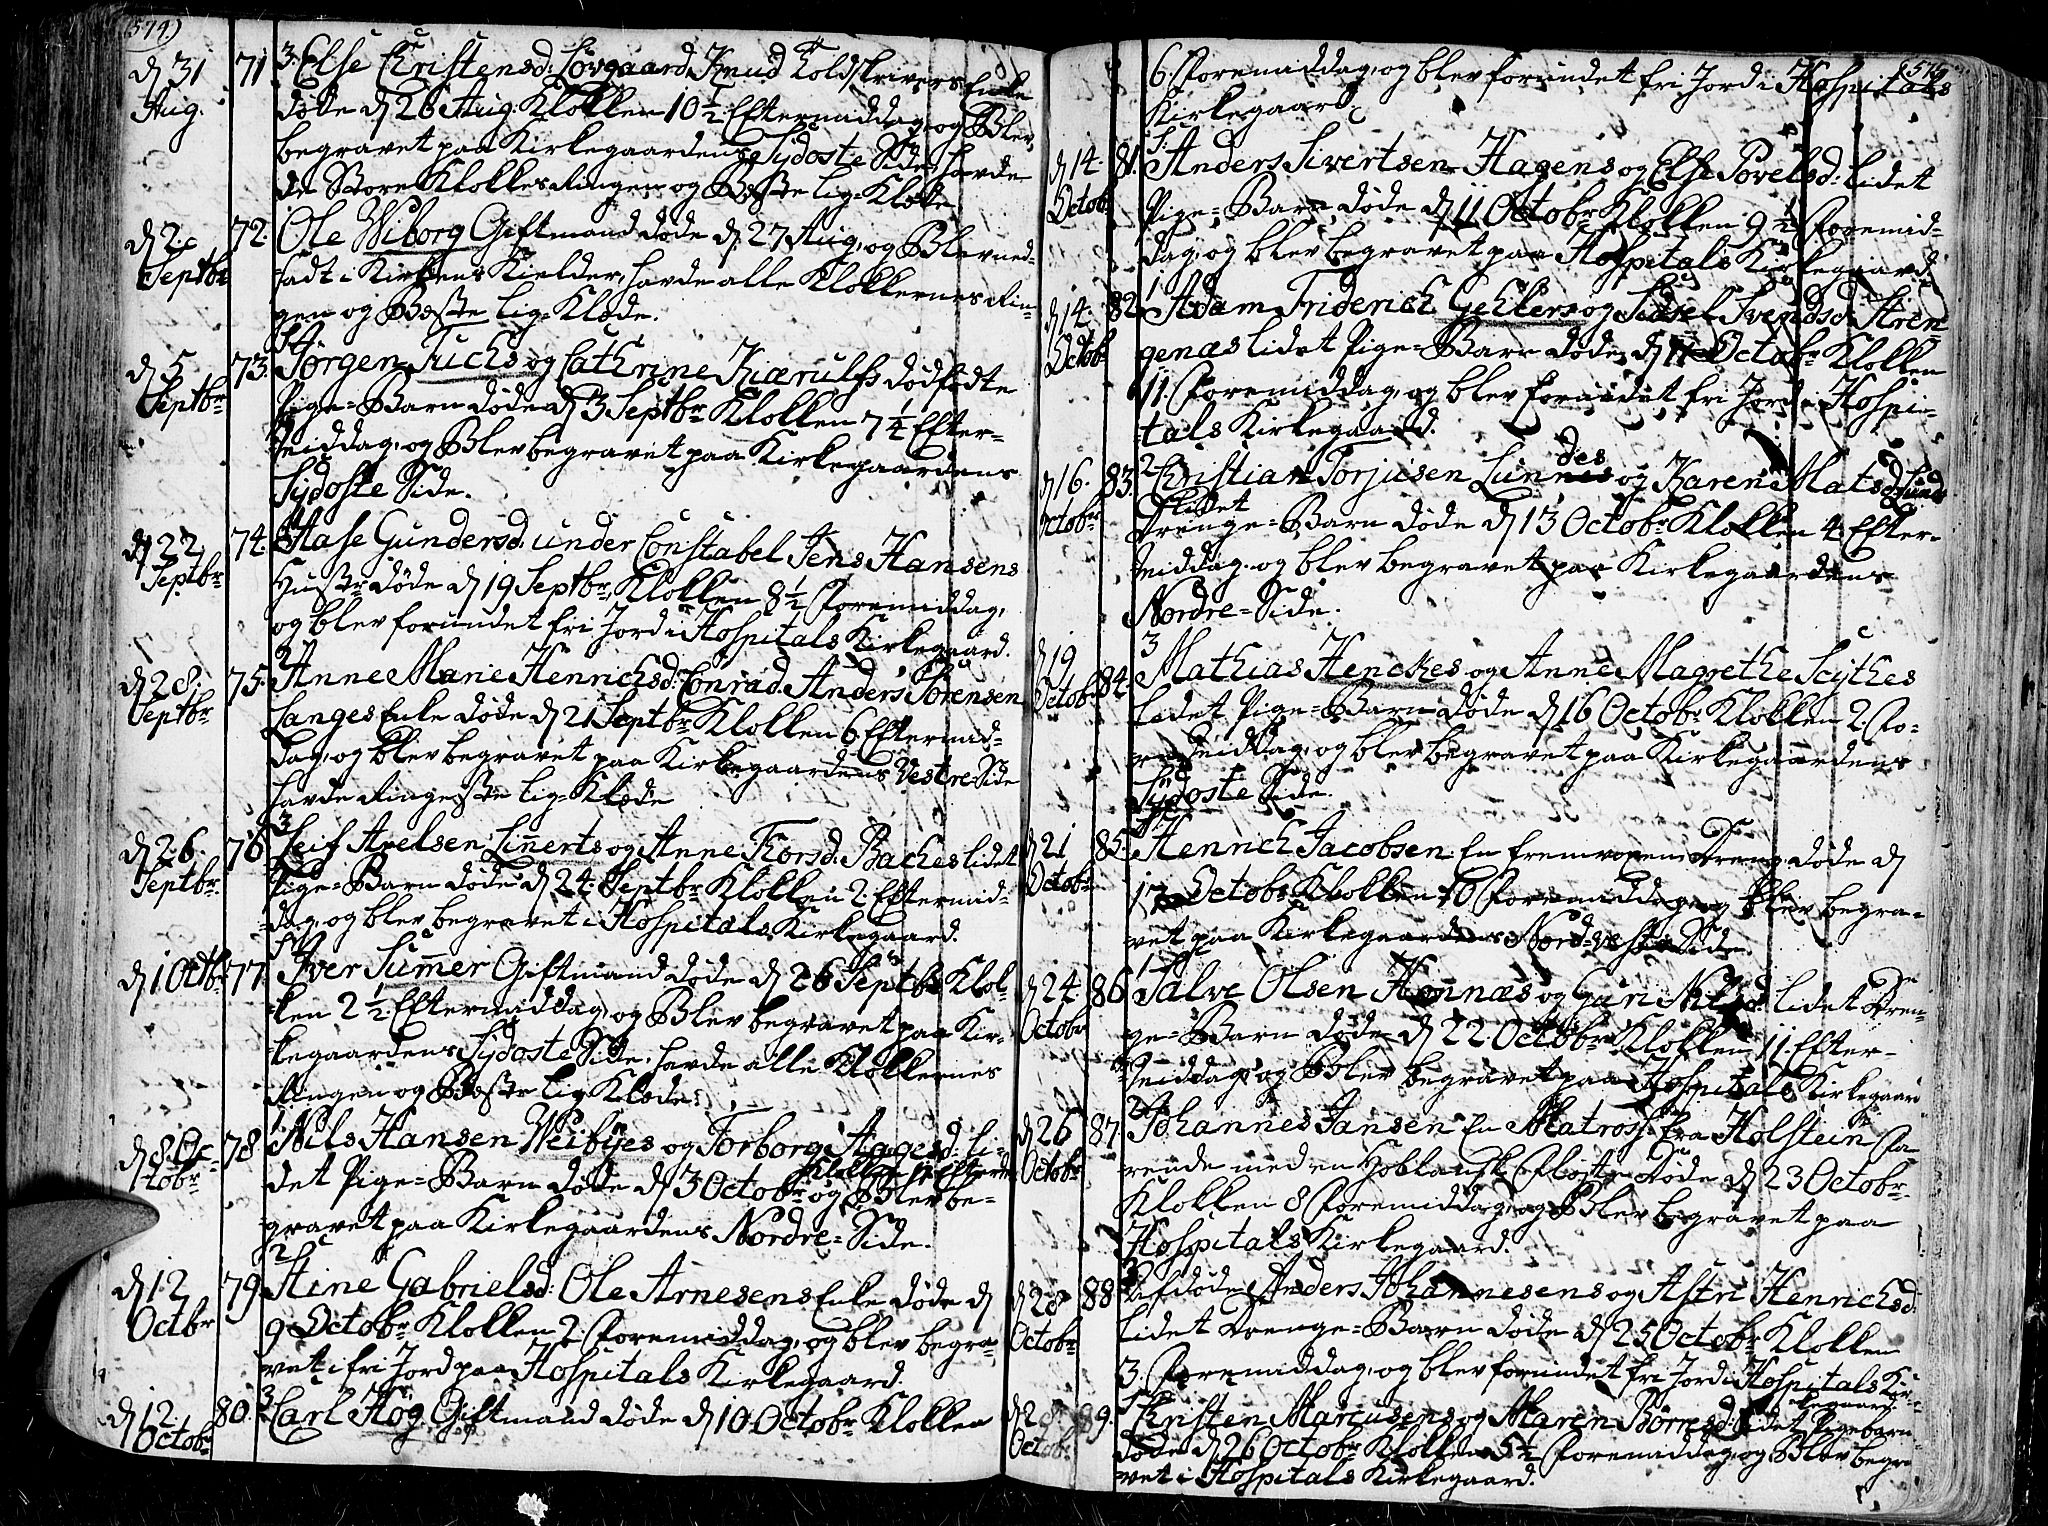 (574.)
d 31 Aug. 71 3. Else Christensd: Lövgaard, Knud Toldskrivers Enke
döde d 26 Aug: Klokken 10 1/2 Eftermiddag, og Blev
begravet paa Kirkegaardens Sydoste Side, havde
de Store Klokkes Ringen og Beste Lig-Klæde
d 2. Septbr 72. Ole Wiborg Giftmand döde d 27 Aug, og Blev ned-
sadt i Kirkens Kielder, havde alle Klokkernes Rin-
gen og Beste Lig-Klæde.
d 5 Septbr 73. Jörgen Juchs og Cathrine Kiærulfs dödfödte
Pige-Barn döde d 3 Septbr Klokken 7 1/4 Efter-
middag, og Blev begravet paa Kirkegaardens
Sydoste Side.
d 22 Septbr 74. Aase Gundersd: under Constabel Jens Hansens
Hustr döde d 19 Septbr, Klokken 8 1/2 Foremiddag,
og blev forundet fri Jord i Hospitals Kirkegaard.
d 28. Septbr 75. Anne Marie Henrichsd: Conrad Anders Sörensen
Langes Enke döde d 21 Septbr Klokken 6 Eftermid-
dag, og blev begravet paa Kirkegaardens Vestre Side
havde Ringeste Lig-Klæde
d 26. Septbr 76 3 Leif Axelsen Linnerts og Anne Thorsd: Baches lidet
Pige-Barn döde d 24 Septbr Klokken 2 Eftermid-
dag, og blev begravet i Hospitals Kirkegaard.
d 1 Octbr 77 Iver Summer Giftmand döde d 26 Septbr Klok-
ken 2 1/2 Eftermiddag, og Blev begravet paa Kir-
kegaardens Sydoste Side, havde alle Klokkernes
Ringen og Beste Lig-Klæde.
d 8. Octobr 78 1. Nils Hansen Weibÿes og Torborg Aagesd: li-
det Pige-Barn döde d 3 Octobr og Blev be-
gravet paa Kirkegaardens Nordre-Side.
d 12 Octbr 79 2 Aine Gabrielsd: Ole Arnesens Enke döde d
9 Octobr Klokken 2 Foremiddag, og blev begra-
vet i fri Jord paa Hospitals Kirkegaard.
d 12 Octobr 80. 3 Carl Hög Giftmand döde d 10 Octobr Klokken
575
6. Foremiddag, og blev forundet fri Jord i Hospitals
Kirkegaard.
d 14. Octobr 81. Anders Sivertsen Hagens og Else Povelsd: lidet
Pige-Barn döde d 11 Octobr Klokken 9 1/2 Foremid-
dag, og blev begravet paa Hospitals Kirkegaard
d 14. Octobr 82. 1 Adam Friderich Gehlers og Sidsel Svendsd: Stren
genæs lidet Pige-Barn döde d 11 Octobr Klokken
11. Foremiddag, og blev forundet fri Jord i Hospi-
tals Kirkegaard.
d 16. Octobr 83. 2 Christian Torjusen Lunndes og Karen Matsd: Lunds
lidet
Drenge-Barn döde d 13 Octobr Klokken 4 Efter-
middag, og blev begravet paa Kirkegaardens
Nordre-Side.
d 19 Octobr 84. 3 Mathias Henckes og Anne Magrethe Scythes
lidet Pige-Barn döde d 16 Octobr Klokken 2 Fo-
remiddag, og blev begravet paa Kirkegaardens
Sydoste Side.
d 21 Octobr 85. Henrich Jacobsen En fremvoxen Dreng döde d
17 Octobr Klokken 10 Foremiddag, og blev begra-
vet paa Kirkegaardens Nord-veste Side
d 24 Octobr 86. 1 Salve Olsen Honnæs og Guri Nilsd: lidet Dren-
ge-Barn döde d 22 Octobr Klokken 11. Efter-
middag, og Blev begravet paa Hospitals Kirkegaard
d 26 Octobr 87 2 Johannes Jansen En Matros fra Holstein Fa-
rende med en Hollansk Flöjte döde d 23 Octobr
Klokken 8 Foremiddag, og Blev begravet paa
Hospitals Kirkegaard.
d 28 Octobr 88 3 Afdöde Anders Johannesens og Astri Henrichsd:
lidet Drenge-Barn döde d 25 Octobr Klokken
3. Foremiddag, og blev forundet fri Jord i Hospitals Kir-
kegaard.
d 28 Octobr 89. Christen Marcusens og Maren Börresd: lidet Pigebarn
döde d 26 Octobr Klokken 5 1/2 Foremiddag, og Blev begra-
vet i Hospitals Kirkegaard.